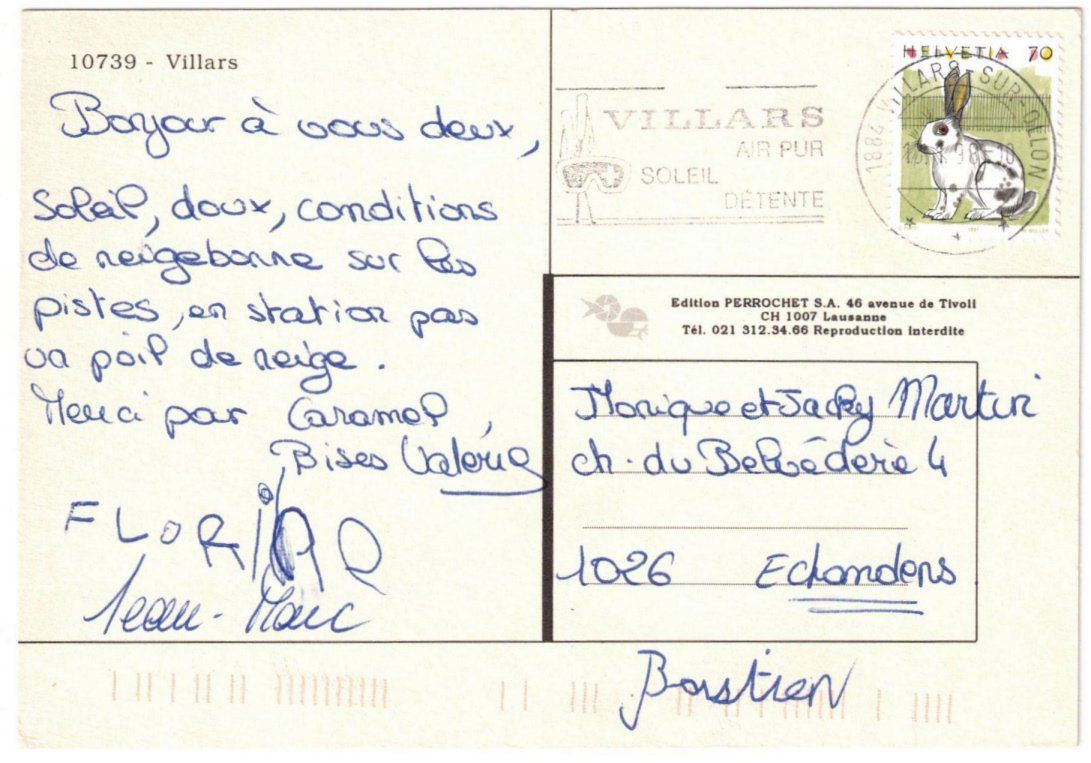 10739 - Villars
Bonjour à vous deux,
Soleil, doux, conditions
de neige bonne sur les
pistes, en station pas
un poil de neige.
Merci par Caramel,
Bises Valérie
FLORIAN
Jean-Marc
VILLARS
AIR PUR
SOLEIL
DÉTENTE
HELVETIA 70
1884 VILLARS-SUR-OLLON
Edition PERROCHET S.A. 46 avenue de Tivoli
CH 1007 Lausanne
Tél. 021 312.34.66 Reproduction interdite
Monique et Jacky Martin
ch. du Belvédère 4
1026 Echandens
Bastien